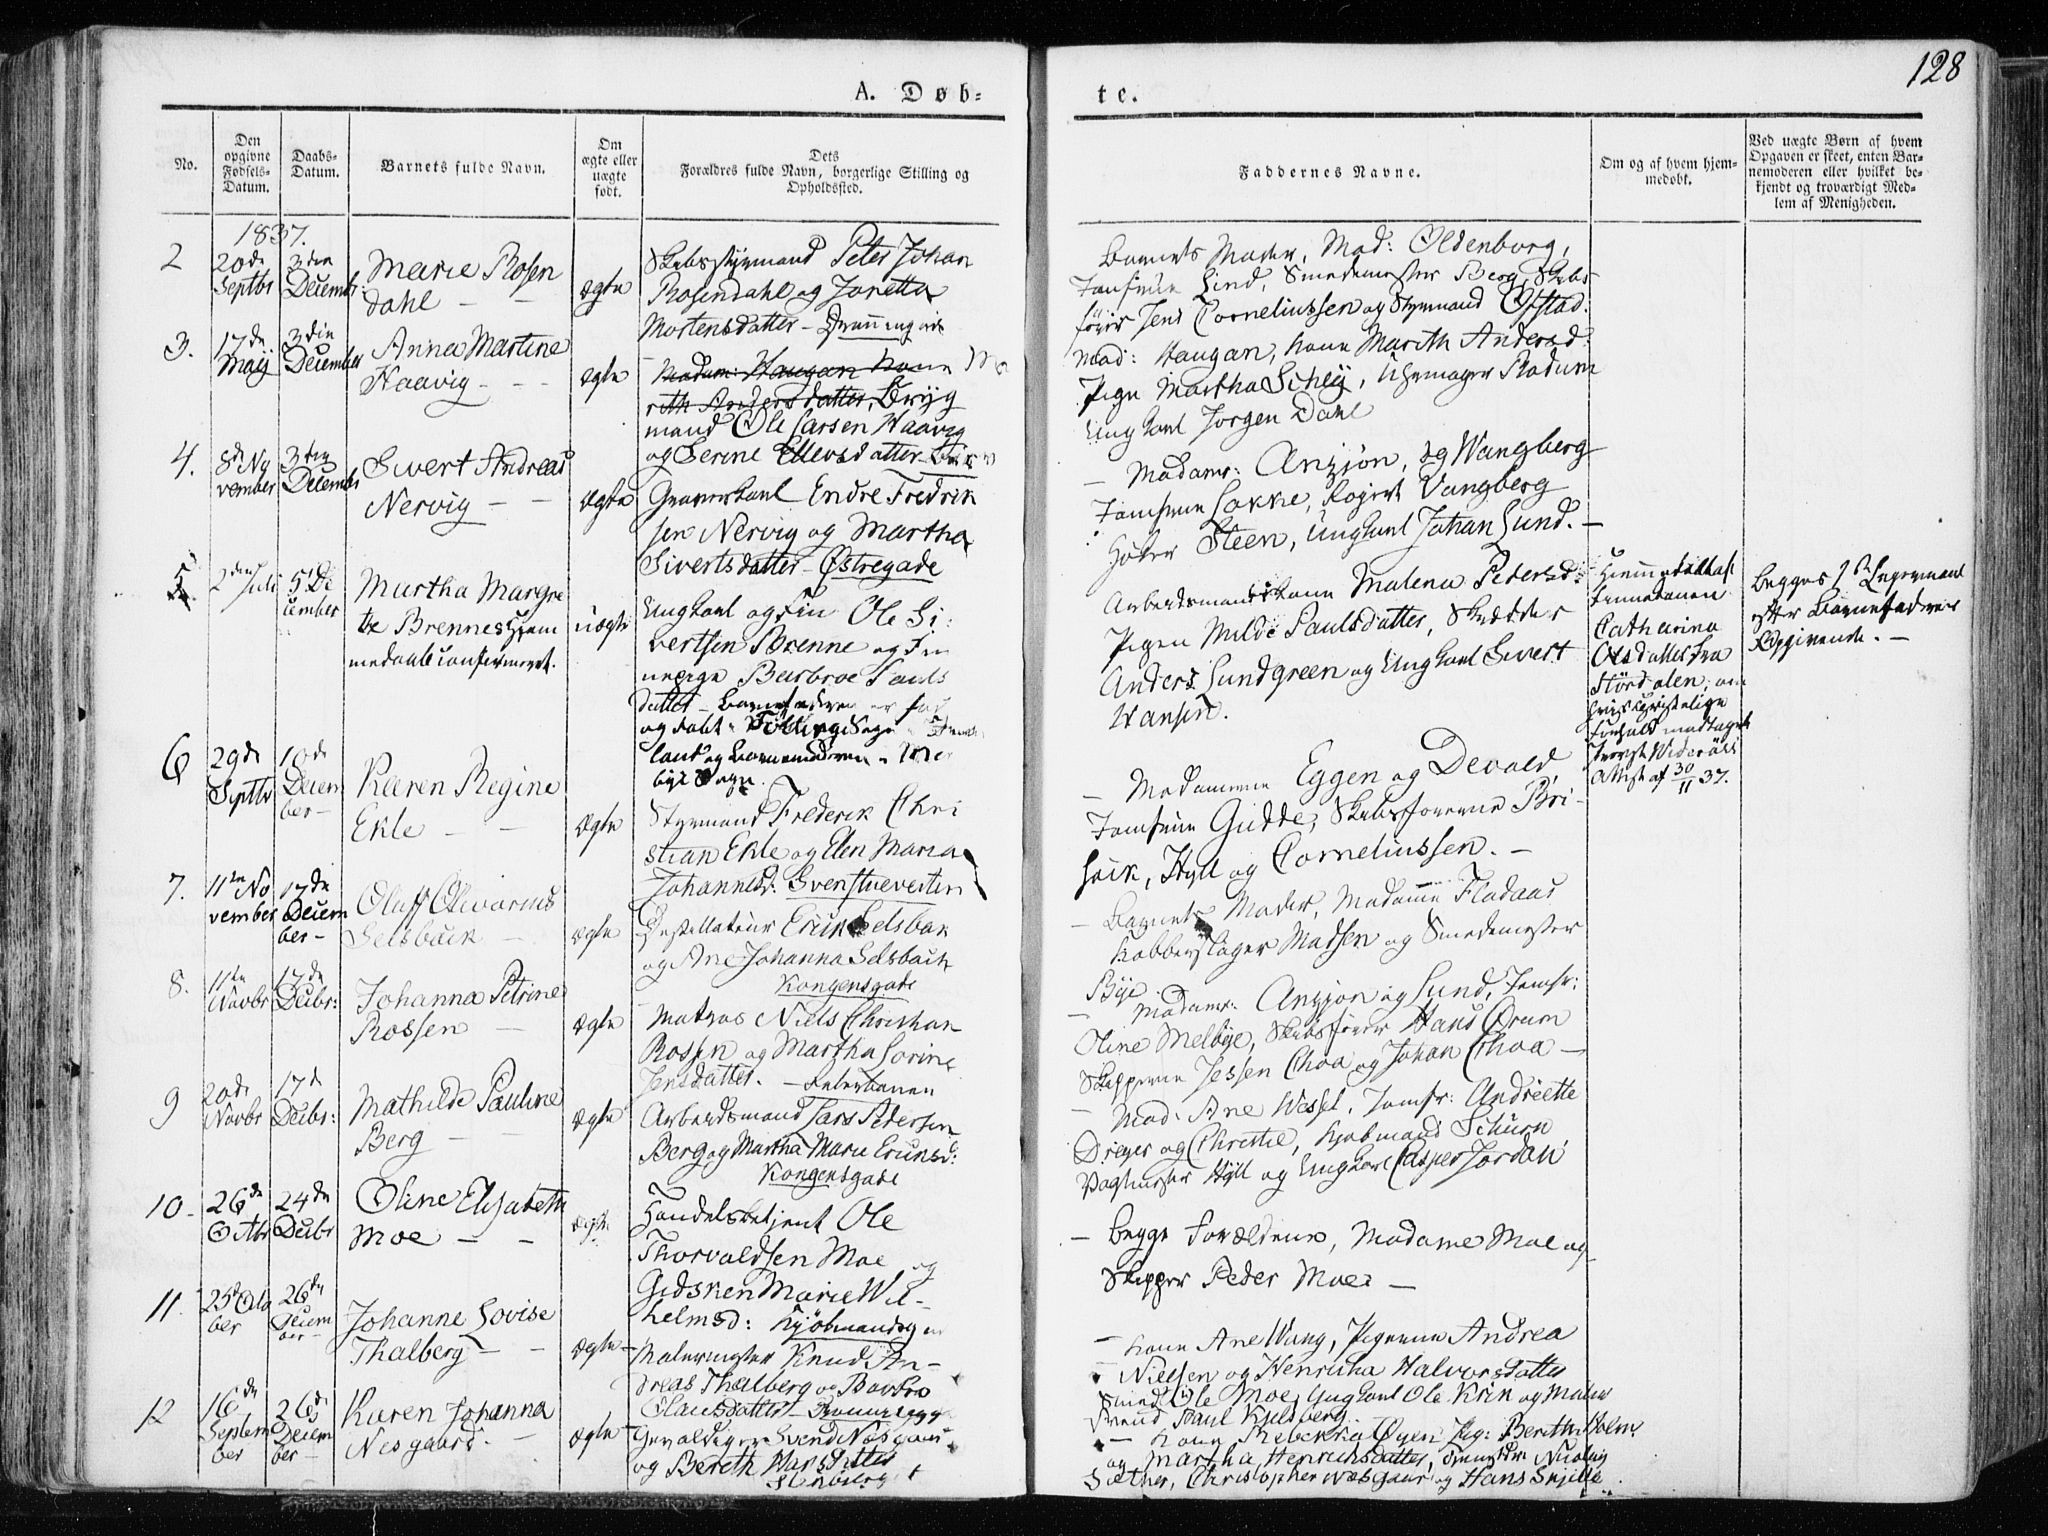 128
A. Døb-
te.
No.
Den
opgivne
Fødsels-
Datum.
Daabs-
Datum.
Barnets fulde Navn.
Om
ægte eller
uægte
født.
Dets
Forældres fulde Navn, borgerlige Stilling og
Opholdssted.
Faddernes Navne.
Om og af hvem hjem-
medøbt.
Ved uægte Børn af hvem
Opgaven er skeet, enten Bar-
nemoderen eller hvilket be-
kjendt og troværdigt Med-
lem af Menigheden.
1837.
2
20de
Septbr
3den
Decembr:
Marie Rosen
dahl
ægte
Skibsstyrmand Peter Johan
Rosendahl og Jonetta
Mortensdatter
Barnets Moder, Mad: Oldenborg,
Jomfrue Lind, Smedemester Berg, Skibs-
fører Jens Corneliussen og Styrmand Ofstad.
3.
17de
Maij
3die
December
Anna Martine
Haavig
ægte
Madam: Haugan Kone Ma
rith Andersdatter, Bryg
mand Ole Larsen Haavig
og Serine Ellevsdatter
Mad: Haugan, Kone Marith Andersd:
Pige Martha Schey, Uhrmager Rodum
Ungkarl Jørgen Dahl
4.
8de No
vember
3die
Decembr
Sivert Andreas
Nervig
ægte
Endre Fredrik
sen Nervig og Martha
Sivertsdatter - Østregade
Madamr: Anzjøn, og Wangberg
Jomfrue Lokke, Vangberg
Høker Steen, Ungkarl Johan Lund.
5
2den Juli
5te De
cember
Martha Margre
the Brennes Hjem
medaab confirmeret.
uægte
Ungkarl og Fin Ole Si
vertsen Brenne og Fin
nepige Barbroe Pauls
datter - Barnefaderen er fød
og døbt i Føllinge Sogn
land og Barnemoderen i Mer
Sogn.
Arbeidsmands Kone Malena Pedersd:
Pigen Milde Paulsdatter, Skrædder
Anders Lundgreen og Ungkarl Sivert
Hansen.
Hjemmedøbt af
Finnekonen
Catharina
Olsdatter fra
Størdalen, om
christelige
Forhold modtaget
Attest af 30/11 37.
Begges 1ste Leyermaal
efter Barnefaderens
Opgivende.
6
29de
Septbr
10de
Decem
ber
Karen Regine
Ekle
ægte
Styrmand Frederik Chri
stian Ekle og Elen Maria
Johannesd:
Madamerne Eggen og Devold,
Jomfrue Gudde, Skibsførerne Bri-
Hyll og Corneliussen.
7.
11te No
vember
17de
Decem
ber
Oluff Olivarius
Selsback
ægte
Destillateur Erik Selsbak
og Ane Johanna Selsback
Kongensgade
Barnets Moder, Madame Flodaas
Kobberslager Madsen og Smedemester
Bye.
8.
11te
Novbr
17de
Decbr:
Johanna Petrine
Rossen
ægte
Matros Niels Christian
Rossen og Martha Lorine
Jensdatter.
Madamr: Anzjøn og Lund, Jomfr:
Oline Melbye, Skibsfører Hans Ørum
Skipperne Jessen Choa og Johan Choa
9
20de
Novbr
17d
Decbr:
Mathilde Pauline
Berg
ægte
Arbeidsmand Lars Petersen
Berg og Martha Marie Eriksd:
Kongensgade
Mad: Ane Wessel, Jomfr: Andreette
Dreyer og Christie, Kjøbmand Schurn
Vagtmester Hyll og Ungkarl Casper Jordan
10.
26de
Octbr
24de
Decbr
Oline Elisabeth
Moe
ægte
Handelsbetjent Ole
Thorvaldsen Moe og
Gidsken Marie Wil-
helmsd: Kjøbmandsgade
Begge Forældrene, Madame Moe og
Skipper Peder Moe
11.
25de Octo
ber
26de
Decem
ber
Johanne Lovise
Thalberg
ægte
Malermester Knud An-
dreas Thalberg og Barbro
Clausdatter
Kone Ane Wang, Pigerne Andrea
Nielsen og Henricka Halvorsdatter
Smed Ole Moe, Ungkarl Ole Krik og Maler
svend Paul Kjelsberg
12
16de
Septem
ber
26de
Decem
ber
Karen Johanna
Nesgaard.
ægte
Gevaldiger Svend Næsgaard
og Bereth Larsdatter
Kone Rebekka Øyen Pig: Bereth Holm
og Martha Henrichsdatter, Nicolay
Sæther, Christopher Næsgaar og Hans Snille